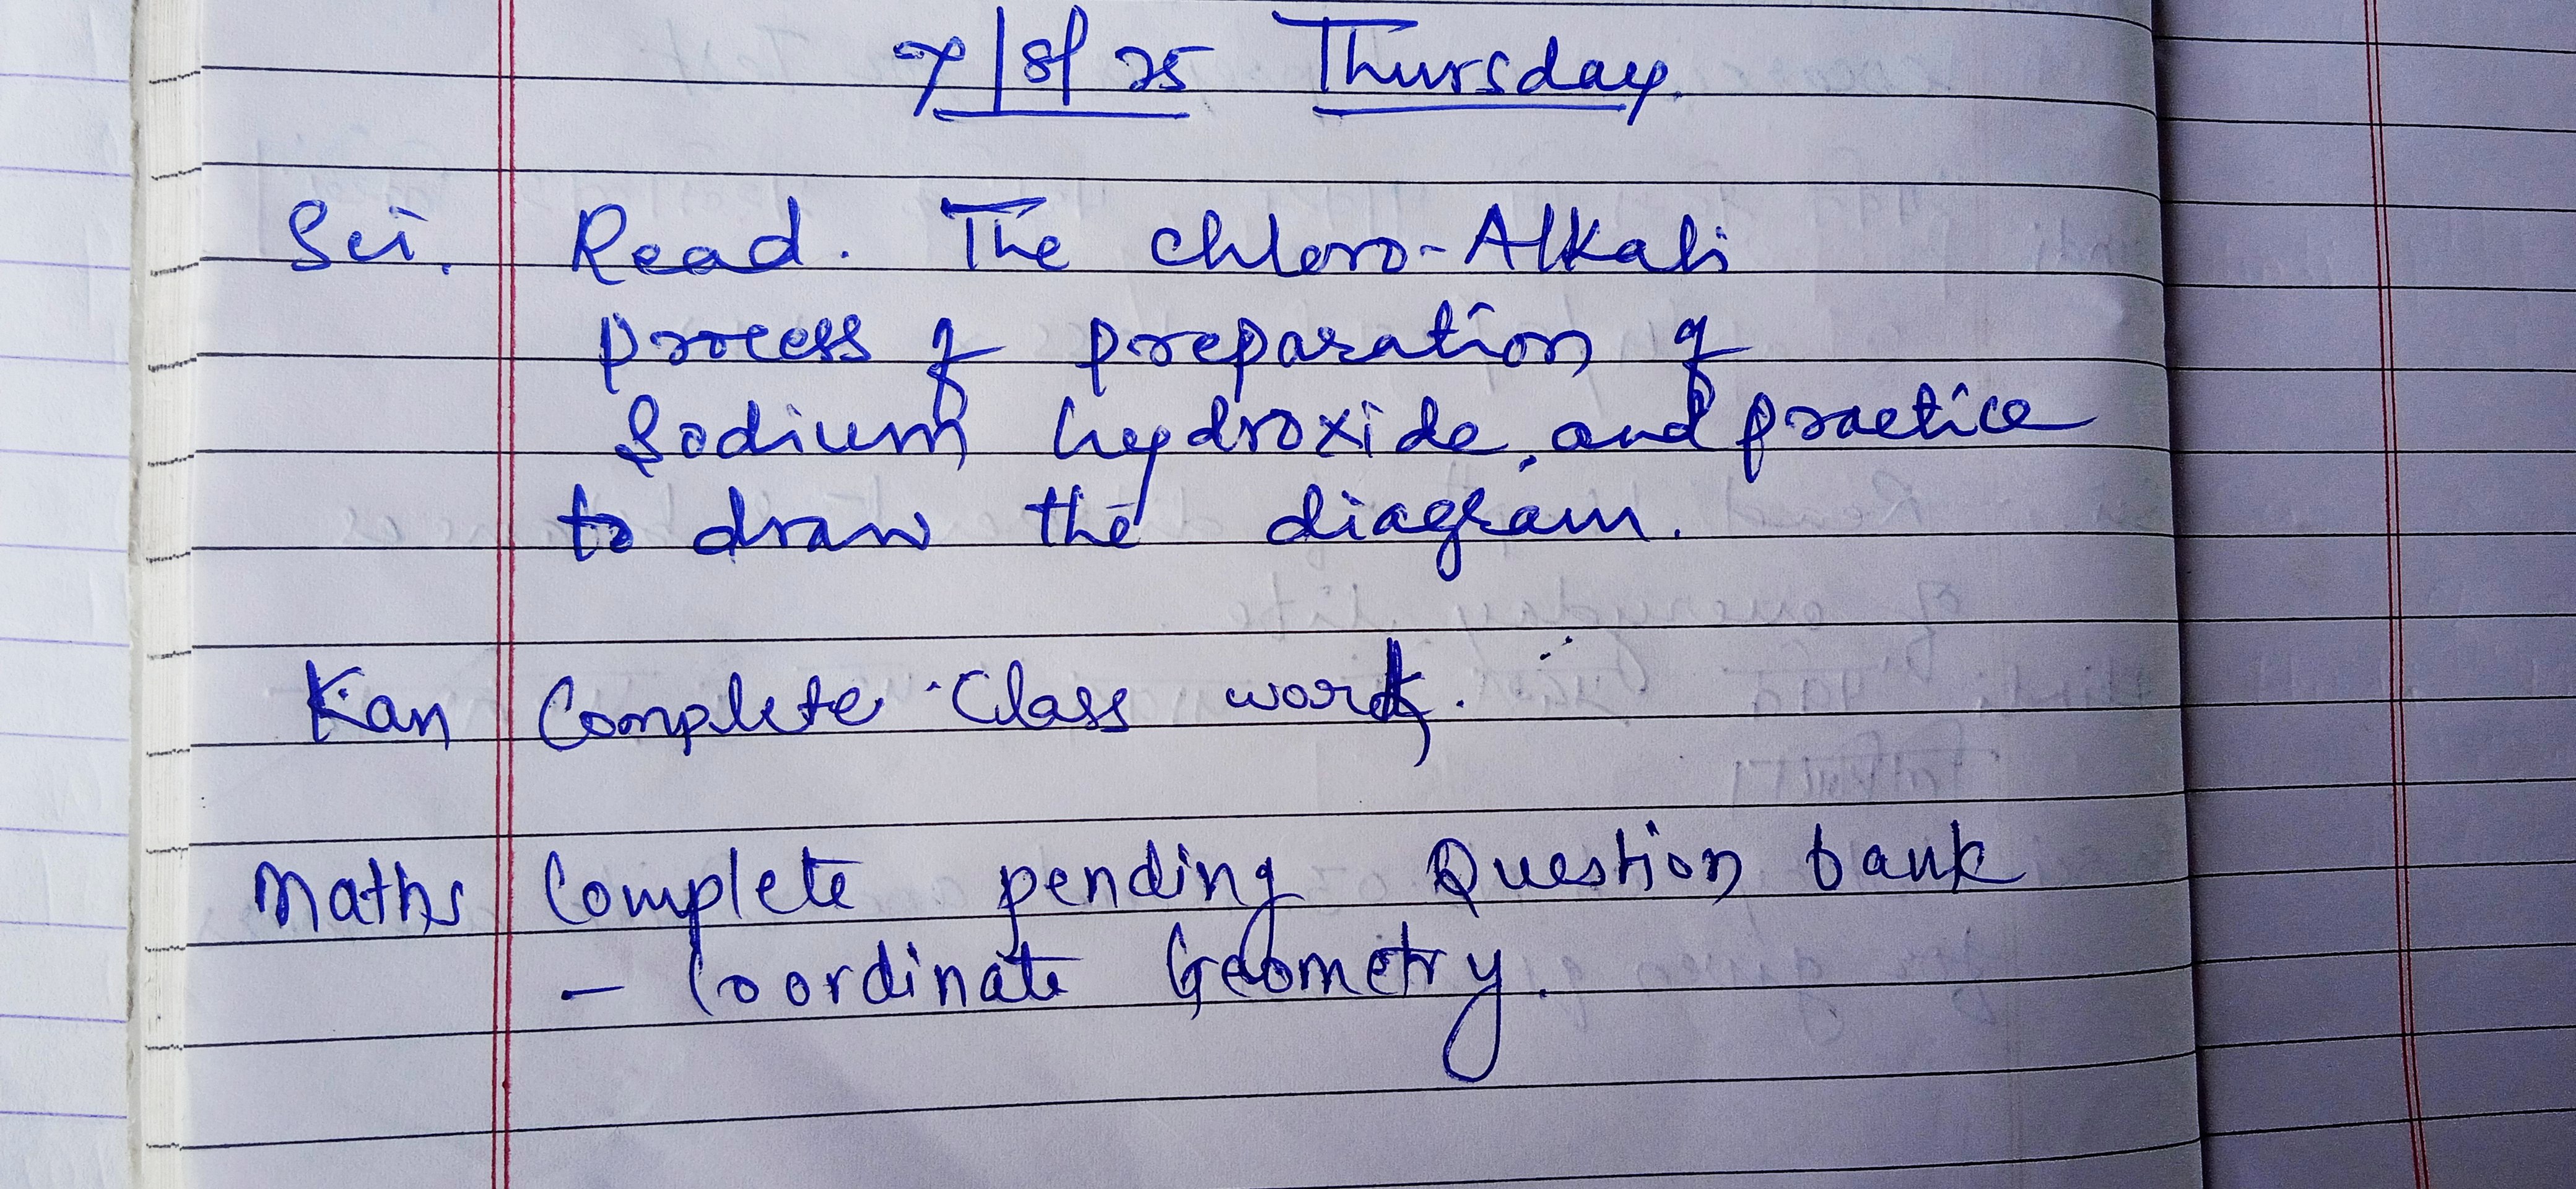 7/8/25 Thursday.
Sci. Read. The chloro-Alkali
process of preparation of
Sodium hydroxide, and practice
to draw the diagram.
Kan Complete Class work.
Maths Complete pending Question bank
- Coordinate Geometry.